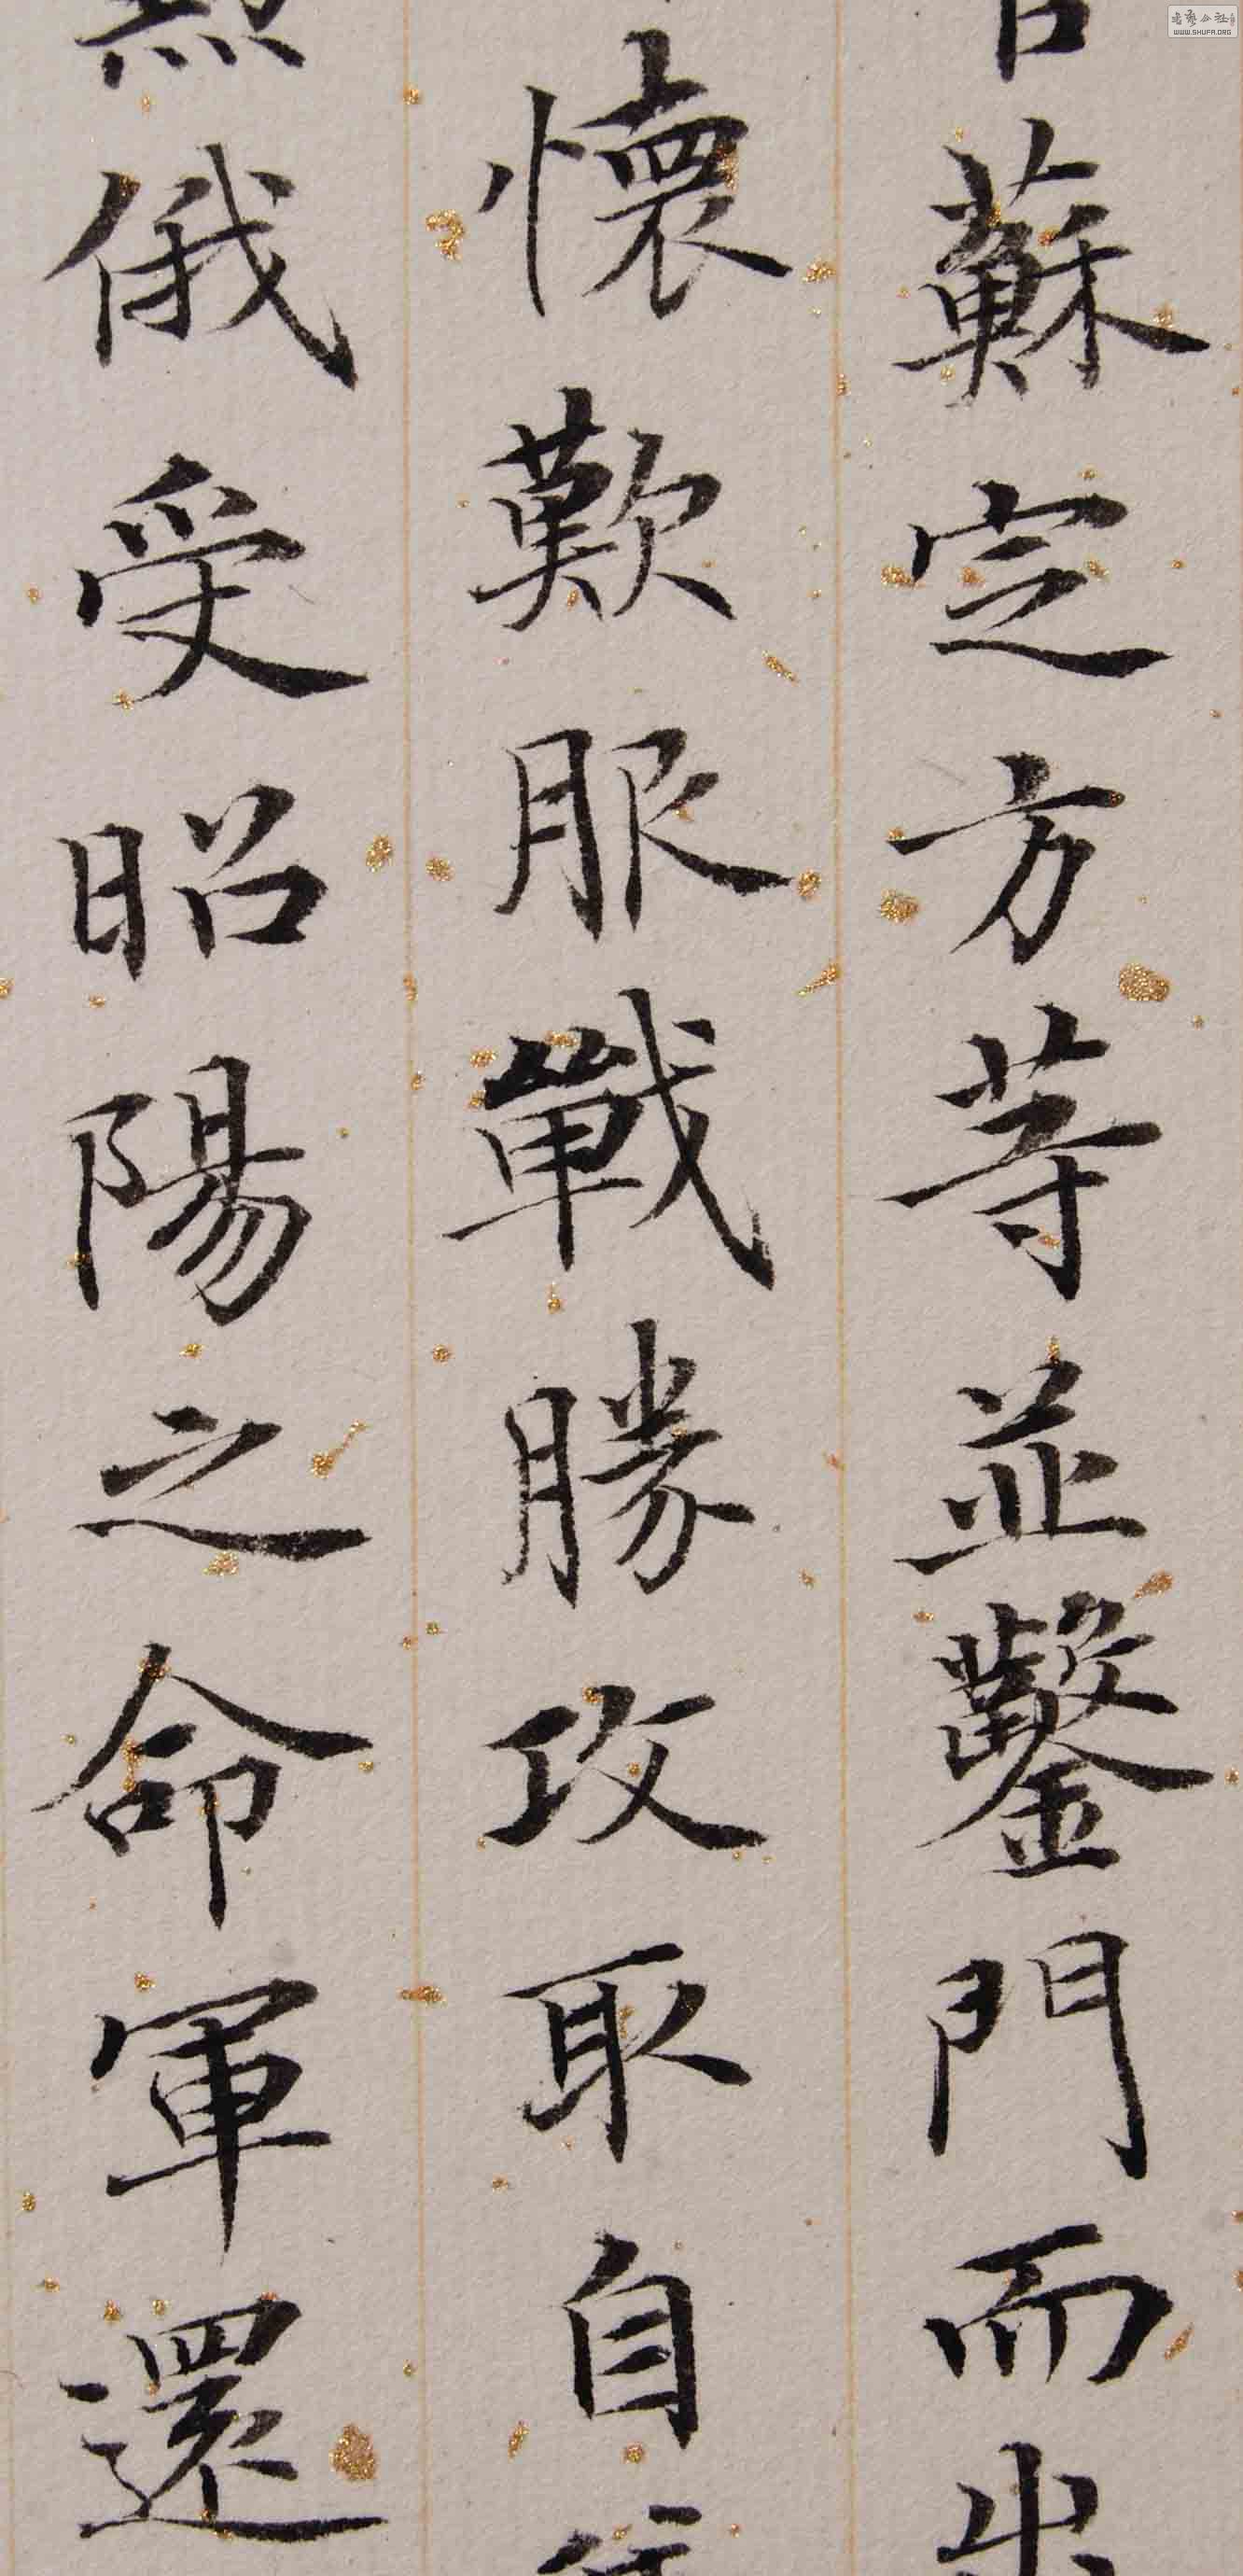 蘇定方等並鑿門而出
懷歎服戰勝攻取自
俄受昭陽之命軍還
WWW.SHUFA.ORG